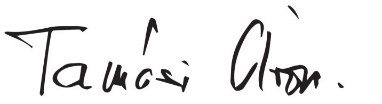 Tamási Áron.